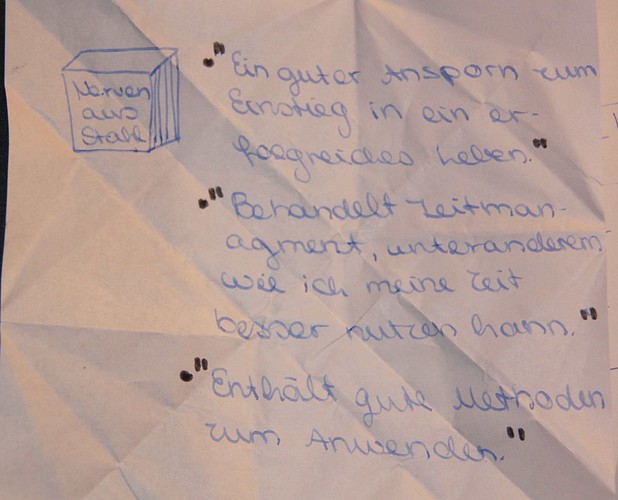 Nerven
aus
Stahl
• "Ein guter Ansporn zum
Einstieg in ein er-
folgreiches Leben."
• "Behandelt Zeitman-
agment, unteranderem
wie ich meine Zeit
besser nutzen kann."
• "Enthält gute Methoden
zum Anwenden."